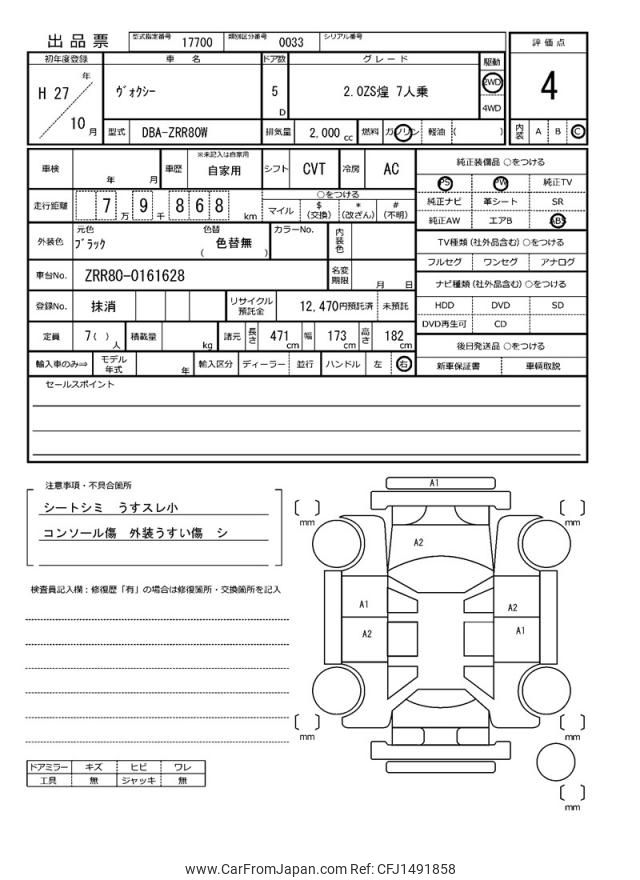 出品票 型式指定番号 17700 類別区分番号 0033 シリアル番号
評価点
4
内装 A B C
初年度登録 車名 ドア数 グレード 駆動
H 27 年 10 月
ヴォクシー 5 D 2.0ZS煌 7人乗 2WD 4WD
型式 DBA-ZRR80W 排気量 2,000 cc 燃料 ガソリン 軽油 ( )
車検 年 月 車歴 ※未記入は自家用 自家用 シフト CVT 冷房 AC
走行距離 7 万 9 千 8 6 8 km
○をつける
マイル $ (交換) * (改ざん) # (不明)
外装色 元色 ブラック 色替 ( 色替無 ) カラーNo. 内装色
車台No. ZRR80-0161628 名変期限 月 日
登録No. 抹消 リサイクル預託金 12,470円預託済 未預託
定員 7( ) 人 積載量 kg 諸元 長さ 471 cm 幅 173 cm 高さ 182 cm
輸入車のみ⇒ モデル年式 年 輸入区分 ディーラー 並行 ハンドル 左 右
純正装備品 ○をつける
PS PW 純正TV
純正ナビ 革シート SR
純正AW エアB ABS
TV種類(社外品含む) ○をつける
フルセグ ワンセグ アナログ
ナビ種類(社外品含む) ○をつける
HDD DVD SD
DVD再生可 CD
後日発送品 ○をつける
新車保証書 車輌取説
セールスポイント
注意事項・不具合箇所
シートシミ うすスレ小
コンソール傷 外装うすい傷 シ
検査員記入欄:修復歴「有」の場合は修復箇所・交換箇所を記入
ドアミラー キズ ヒビ ワレ
工具 無 ジャッキ 無
A1
mm mm
A2
A1 A2
A2 A1
mm mm
mm
www.CarFromJapan.com Ref: CFJ1491858